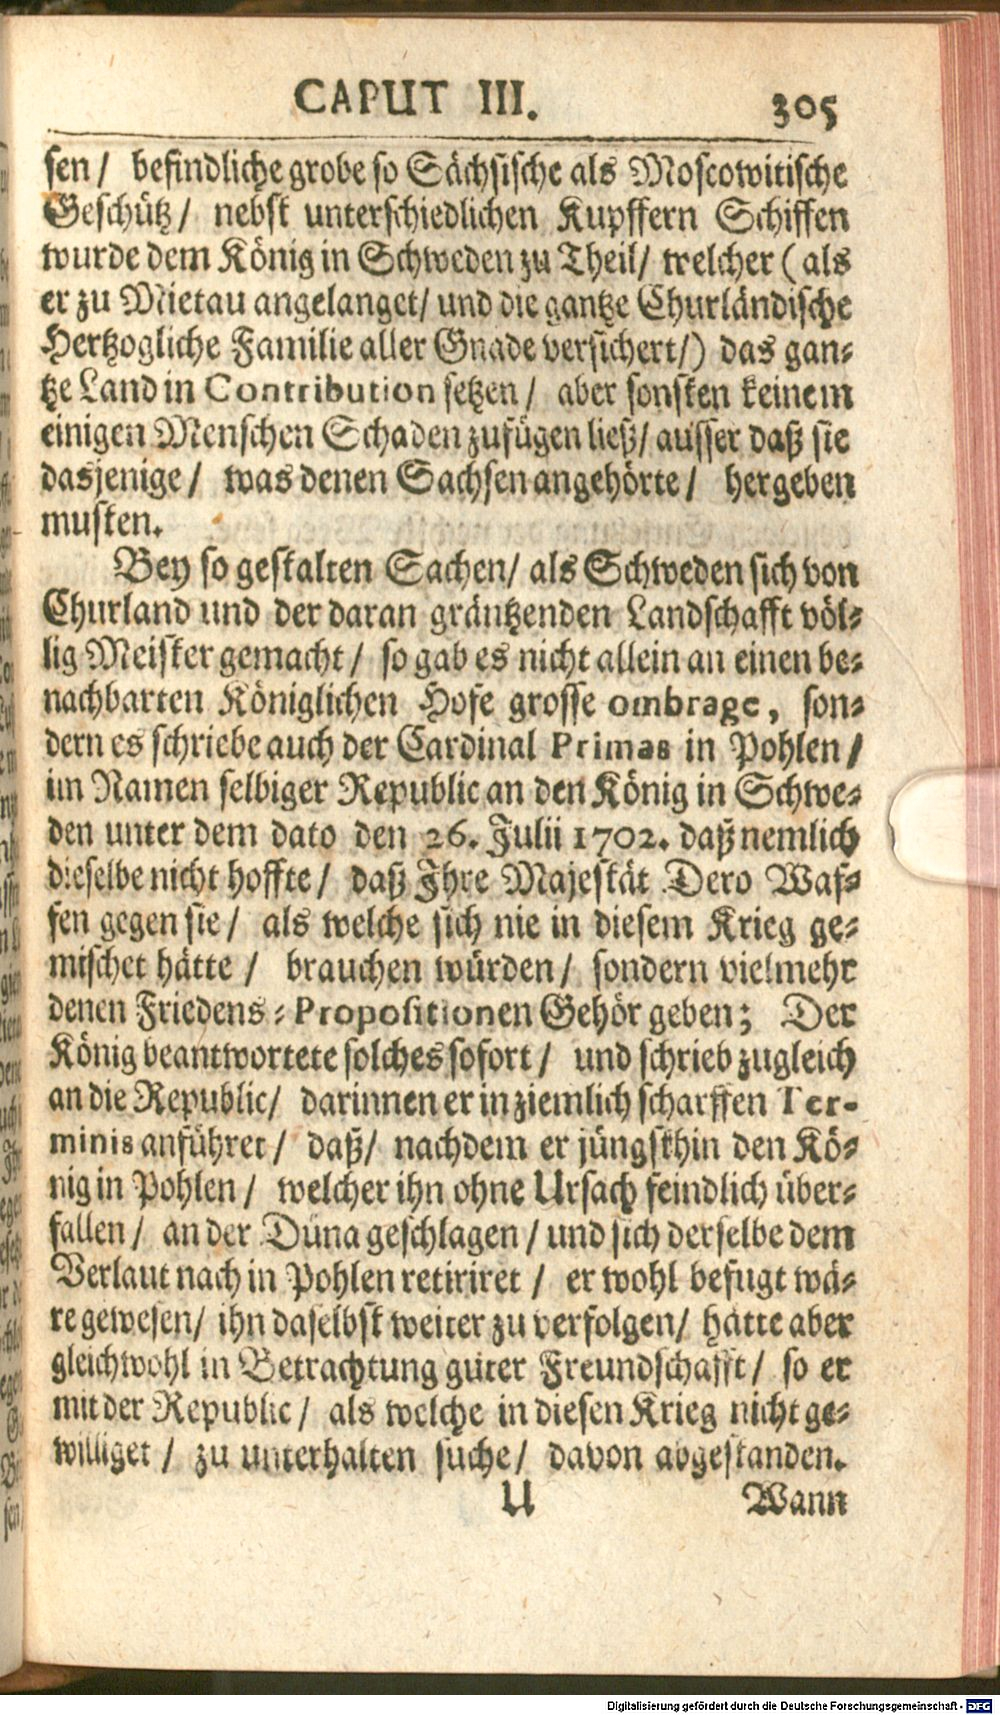 CAPUT III. 305
sen/ befindliche grobe so Sächsische als Moscowitische
Geschütz/ nebst unterschiedlichen Kupffern Schiffen
wurde dem König in Schweden zu Theil/ welcher (als
er zu Mietau angelanget/ und die gantze Churländische
Hertzogliche Familie aller Gnade versichert/) das gan-
tze Land in Contribution setzen/ aber sonsten keinem
einigen Menschen Schaden zufügen ließ/ ausser daß sie
dasjenige/ was denen Sachsen angehörte/ hergeben
musten.
Bey so gestalten Sachen/ als Schweden sich von
Churland und der daran gräntzenden Landschafft völ-
lig Meister gemacht/ so gab es nicht allein an einen be-
nachbarten Königlichen Hofe grosse ombrage, son-
dern es schriebe auch der Cardinal Primas in Pohlen/
im Namen selbiger Republic an den König in Schwe-
den unter dem dato den 26. Julii 1702. daß nemlich
dieselbe nicht hoffte/ daß Ihre Majestät Dero Waf-
fen gegen sie/ als welche sich nie in diesem Krieg ge-
mischet hätte/ brauchen würden/ sondern vielmehr
denen Friedens-Propositionen Gehör geben; Der
König beantwortete solches sofort/ und schrieb zugleich
an die Republic/ darinnen er in ziemlich scharffen Ter-
minis anführet/ daß/ nachdem er jüngsthin den Kö-
nig in Pohlen/ welcher ihn ohne Ursach feindlich über-
fallen/ an der Düna geschlagen/ und sich derselbe dem
Verlaut nach in Pohlen retiriret/ er wohl befugt wä-
re gewesen/ ihn daselbst weiter zu verfolgen/ hätte aber
gleichwohl in Betrachtung guter Freundschafft/ so er
mit der Republic/ als welche in diesen Krieg nicht ge-
williget/ zu unterhalten suche/ davon abgestanden.
U Wann
Digitalisierung gefördert durch die Deutsche Forschungsgemeinschaft - DFG